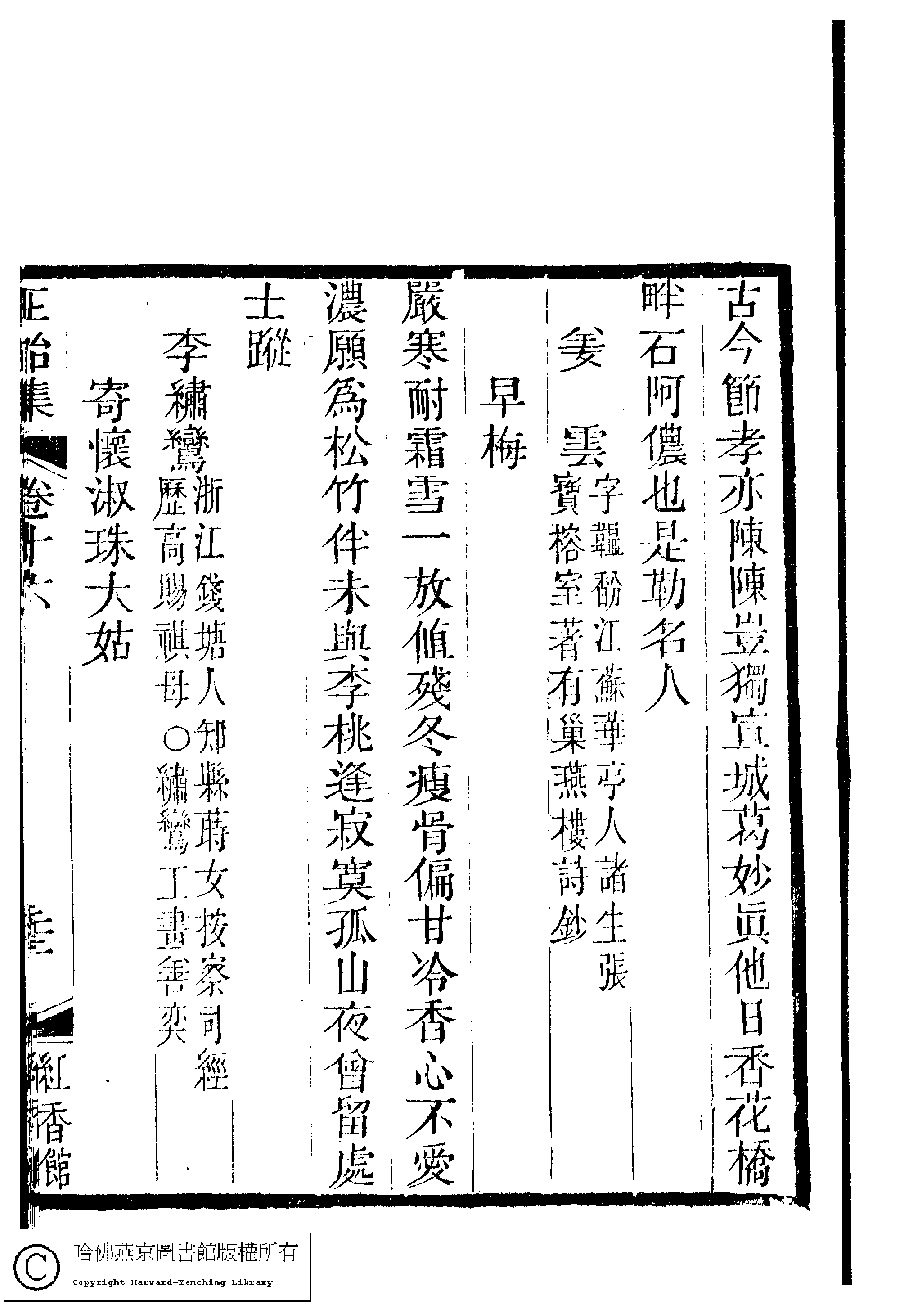 古今節孝亦陳陳豈獨宣城葛妙眞他日香花橋
畔石阿儂也是勒名人
姜雲
字韞江蘇華亭人諸生張
寶榕室著有巢燕樓詩鈔
早梅
嚴寒耐霜雪一放値殘冬瘦骨偏甘冷香心不愛
濃願爲松竹伴未與李桃逢寂寞孤山夜曾留處
士蹤
李繡鸞
浙江錢塘人知縣蒔女按察司經
歷高賜祺母○繡鸞工畫善奕
寄懷淑珠大姑
正始集 卷十六 紅香館
哈佛燕京圖書館版權所有
Copyright Harvard-Yenching Library